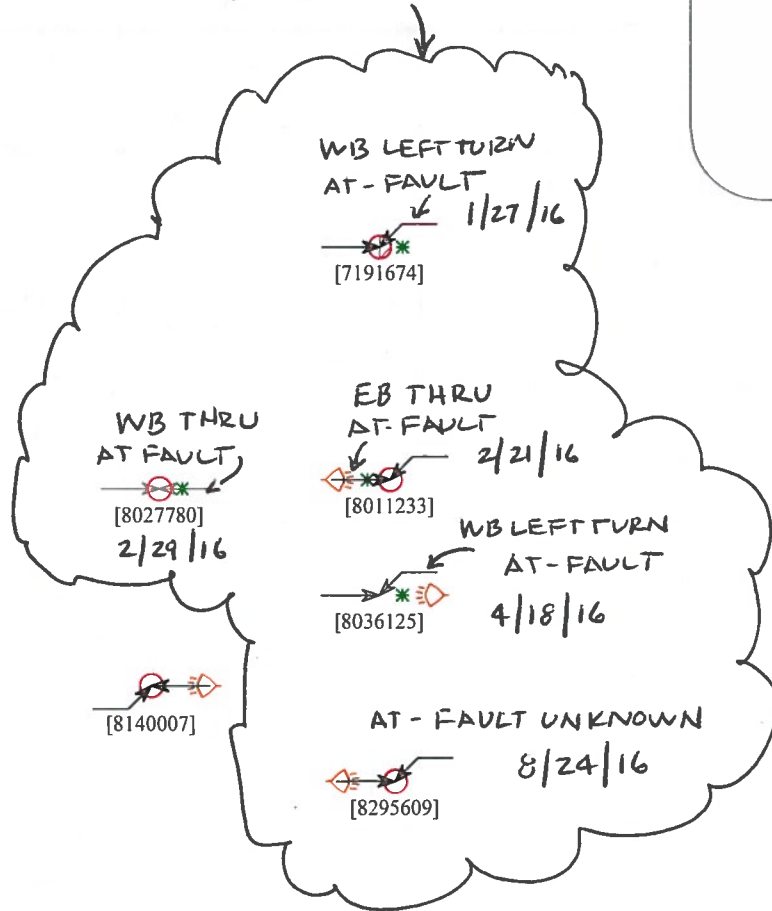 WB LEFT TURN
AT-FAULT
1/27/16
[7191674]
WB THRU
AT FAULT
[8027780]
2/29/16
EB THRU
AT-FAULT
2/21/16
[8011233]
WB LEFT TURN
AT-FAULT
4/18/16
[8036125]
[8140007]
AT-FAULT UNKNOWN
8/24/16
[8295609]